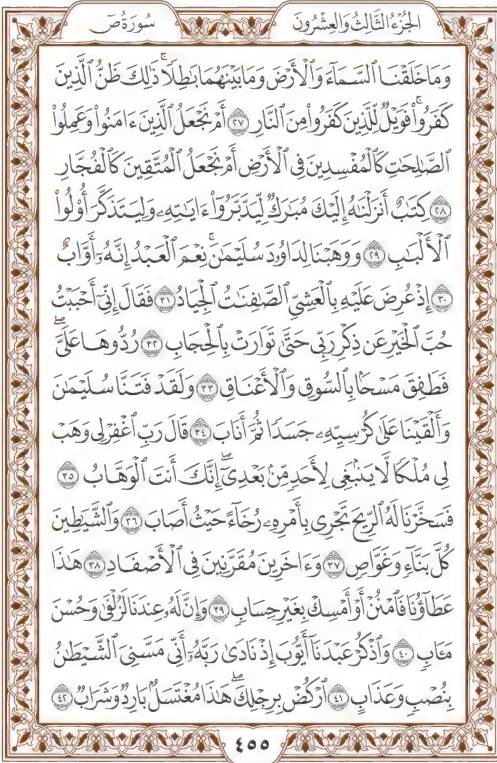 الجزء الثالث والعشرون
سورة ص
وَمَا خَلَقْنَا ٱلسَّمَآءَ وَٱلْأَرْضَ وَمَا بَيْنَهُمَا بَٰطِلًا ۚ ذَٰلِكَ ظَنُّ ٱلَّذِينَ
كَفَرُوا۟ ۚ فَوَيْلٌ لِّلَّذِينَ كَفَرُوا۟ مِنَ ٱلنَّارِ ٢٧ أَمْ نَجْعَلُ ٱلَّذِينَ ءَامَنُوا۟ وَعَمِلُوا۟
ٱلصَّٰلِحَٰتِ كَٱلْمُفْسِدِينَ فِى ٱلْأَرْضِ أَمْ نَجْعَلُ ٱلْمُتَّقِينَ كَٱلْفُجَّارِ
٢٨ كِتَٰبٌ أَنزَلْنَٰهُ إِلَيْكَ مُبَٰرَكٌ لِّيَدَّبَّرُوٓا۟ ءَايَٰتِهِۦ وَلِيَتَذَكَّرَ أُو۟لُوا۟
ٱلْأَلْبَٰبِ ٢٩ وَوَهَبْنَا لِدَاوُۥدَ سُلَيْمَٰنَ ۚ نِعْمَ ٱلْعَبْدُ ۖ إِنَّهُۥٓ أَوَّابٌ
٣٠ إِذْ عُرِضَ عَلَيْهِ بِٱلْعَشِىِّ ٱلصَّٰفِنَٰتُ ٱلْجِيَادُ ٣١ فَقَالَ إِنِّىٓ أَحْبَبْتُ
حُبَّ ٱلْخَيْرِ عَن ذِكْرِ رَبِّى حَتَّىٰ تَوَارَتْ بِٱلْحِجَابِ ٣٢ رُدُّوهَا عَلَىَّ ۖ
فَطَفِقَ مَسْحًۢا بِٱلسُّوقِ وَٱلْأَعْنَاقِ ٣٣ وَلَقَدْ فَتَنَّا سُلَيْمَٰنَ
وَأَلْقَيْنَا عَلَىٰ كُرْسِيِّهِۦ جَسَدًا ثُمَّ أَنَابَ ٣٤ قَالَ رَبِّ ٱغْفِرْ لِى وَهَبْ
لِى مُلْكًا لَّا يَنۢبَغِى لِأَحَدٍ مِّنۢ بَعْدِىٓ ۖ إِنَّكَ أَنتَ ٱلْوَهَّابُ ٣٥
فَسَخَّرْنَا لَهُ ٱلرِّيحَ تَجْرِى بِأَمْرِهِۦ رُخَآءً حَيْثُ أَصَابَ ٣٦ وَٱلشَّيَٰطِينَ
كُلَّ بَنَّآءٍ وَغَوَّاصٍ ٣٧ وَءَاخَرِينَ مُقَرَّنِينَ فِى ٱلْأَصْفَادِ ٣٨ هَٰذَا
عَطَآؤُنَا فَٱمْنُنْ أَوْ أَمْسِكْ بِغَيْرِ حِسَابٍ ٣٩ وَإِنَّ لَهُۥ عِندَنَا لَزُلْفَىٰ وَحُسْنَ
مَـَٔابٍ ٤٠ وَٱذْكُرْ عَبْدَنَآ أَيُّوبَ إِذْ نَادَىٰ رَبَّهُۥٓ أَنِّى مَسَّنِىَ ٱلشَّيْطَٰنُ
بِنُصْبٍ وَعَذَابٍ ٤١ ٱرْكُضْ بِرِجْلِكَ ۖ هَٰذَا مُغْتَسَلٌۢ بَارِدٌ وَشَرَابٌ ٤٢
٤٥٥